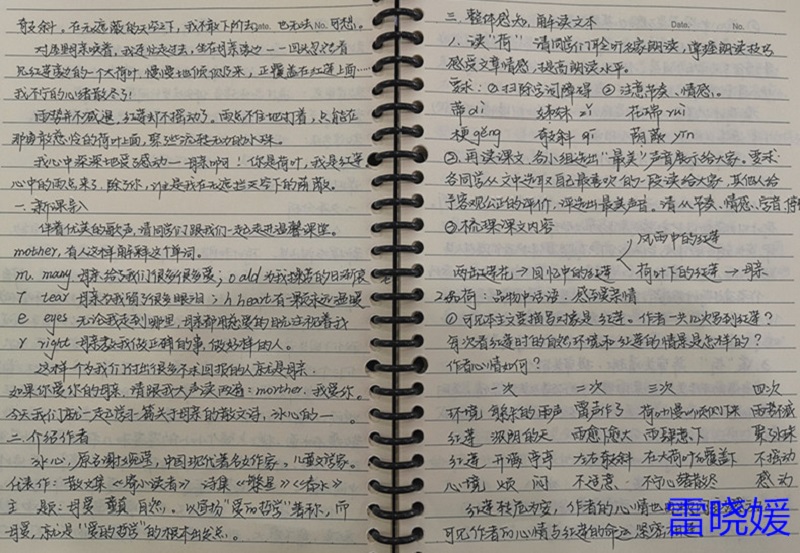 欹斜。在无遮蔽的天空之下,我不敢下阶去,也无法可想。
对屋里母亲唤着,我连忙走过去,坐在母亲旁边——一回头忽然看
见红莲旁边的一个大荷叶,慢慢地倾侧下来,正覆盖在红莲上面……
我不宁的心绪散尽了!
雨势并不减退,红莲却不摇动了。雨点不住地打着,只能在
那勇敢慈怜的荷叶上面,聚些流转无力的水珠。
我心中深深地受了感动——母亲呵!你是荷叶,我是红莲,
心中的雨点来了,除了你,谁是我在无遮拦天空下的荫蔽。
一、新课导入
伴着优美的歌声,请同学们跟我们一起走进温馨课堂。
mother,有人这样解释这个单词。
m. many 母亲给了我们很多很多爱;o old 为我操劳的日渐
T tear 母亲为我留了很多眼泪;h heart 有一颗永远温暖
e eyes 无论我走到哪里,母亲都用慈爱的目光注视着我
r right 母亲教我做正确的事,做好样的人。
这样一个为我们付出很多不求回报的人就是母亲.
如果你爱你的母亲,请跟我大声读两遍:morther.我爱你。
今天我们就一起学习一篇关于母亲的散文诗,冰心的——。
二、介绍作者
冰心,原名谢婉莹,中国现代著名女作家,儿童文学家。
代表作:散文集《寄小读者》 诗集《繁星》《春水》
主题:母爱 童真 自然。以宣扬"爱的哲学"著称,而
母爱,就是"爱的哲学"的根本出发点。
三、整体感知,解读文本
Date. No.
1. 读"荷" 请同学们听名家朗读,掌握朗读技巧
感受文章情感,提高朗读水平。
要求:①扫除字词障碍 ②注意节奏、情感。
蒂dì 姊妹zǐ 花瑞ruì
梗gěng 欹斜qī 荫蔽yīn
②再读课文,各小组选出"最美"声音展示给大家。要求
各同学从文中选取自己最喜欢的一段读给大家,其他人给
予客观公正的评价,评选出最美声音。请从节奏、情感、字音
③梳理课文内容
风雨中的红莲
两缸莲花→回忆中的红莲
荷叶下的红莲→母亲
2.品荷:品物中话语,感受亲情
①可见本文主要描写对象是红莲。作者一共几次写到红莲?
每次看红莲时的自然环境和红莲的情景是怎样的?
作者心情如何?
一次 二次 三次 四次
环境 繁杂的雨声 雷声作了 荷叶慢慢倾侧下来 雨势不减
红莲 浓阴的天 雨愈下愈大 雨肆意下 聚水珠
红莲 开满 亭亭 左右欹斜 在大荷叶覆盖下 不摇动
心境 烦闷 不适意 不宁心绪散尽 感动
红莲转危为安,作者的心情也
可见作者的心情与红莲的命运紧密相连
雷晓媛